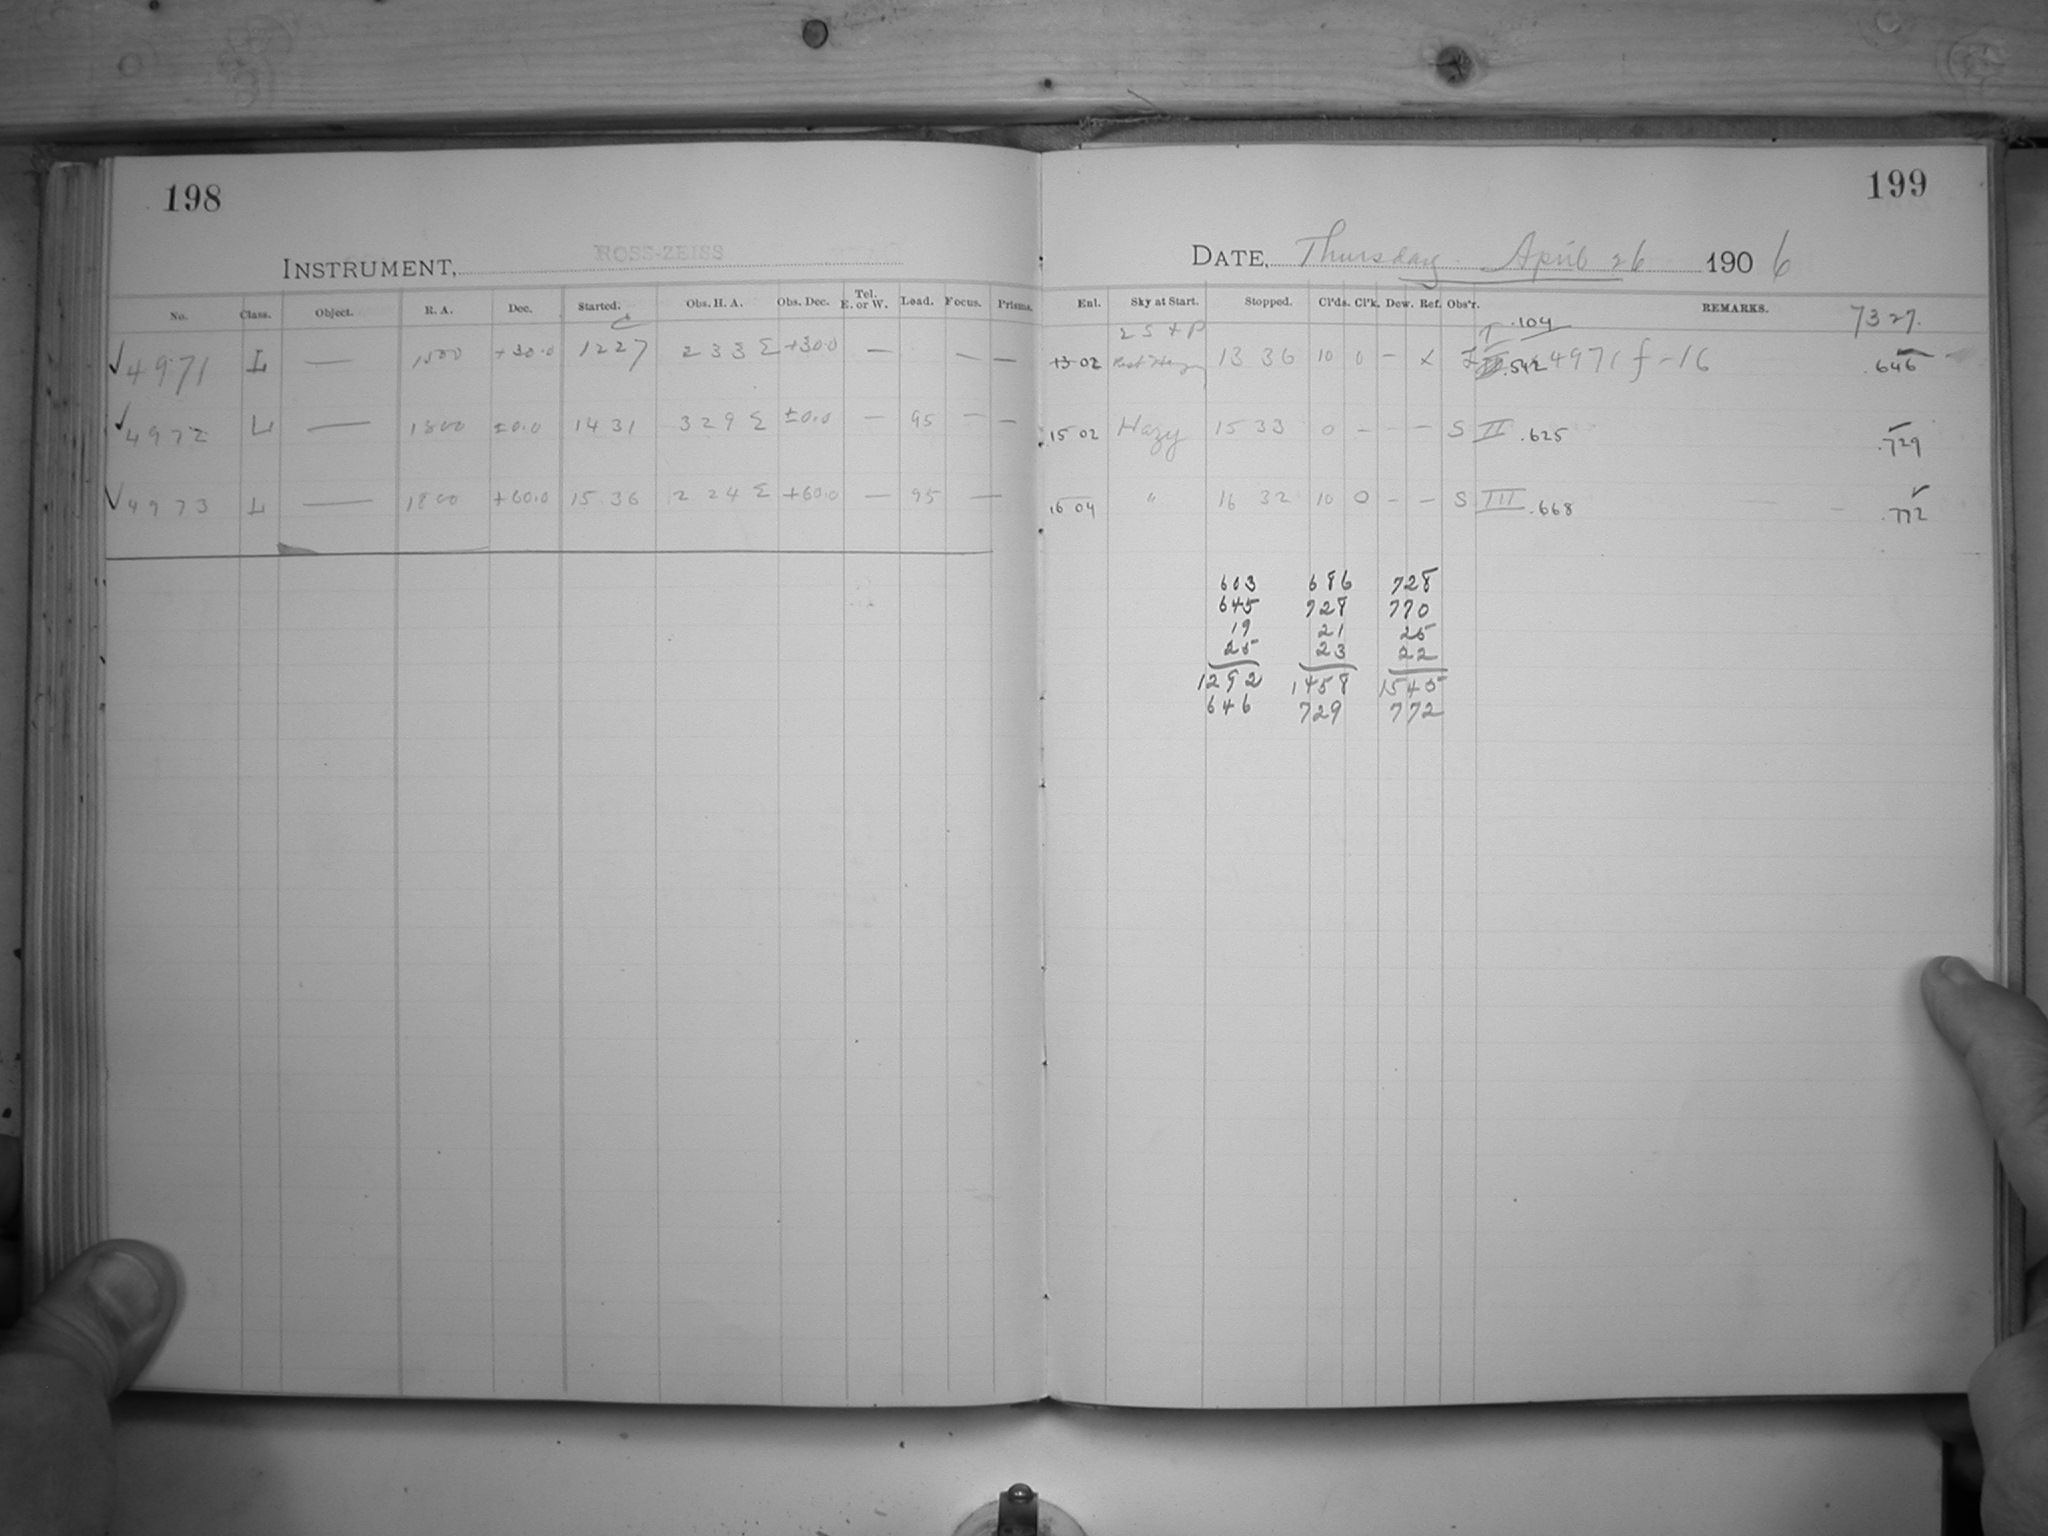 198
INSTRUMENT, ROSS-ZEISS
No. Class. Object. R. A. Dec. Started. Obs. H. A. Obs. Dec. Tel. E. or W. Lead. Focus. Prisms.
✓4971 L — 1500 +30.0 1227 233 E +30.0 — — —
✓4972 L — 1800 ±0.0 14 31 329 E ±0.0 — 95 — —
✓4973 L — 1800 +60.0 15 36 224 E +60.0 — 95 —
199
DATE, Thursday April 26 1906
Enl. Sky at Start. Stopped. Cl'ds. Cl'k. Dew. Ref. Obs'r. REMARKS. 7327.
.104
13 02 Hazy 13 36 10 0 — .542 4971 f-16 .646
15 02 Hazy 15 33 0 — — — S II .625 .729
16 04 " 16 32 10 0 — — S III .668 .772
603 686 728
645 728 770
19 21 25
25 23 22
1292 1458 1545
646 729 772